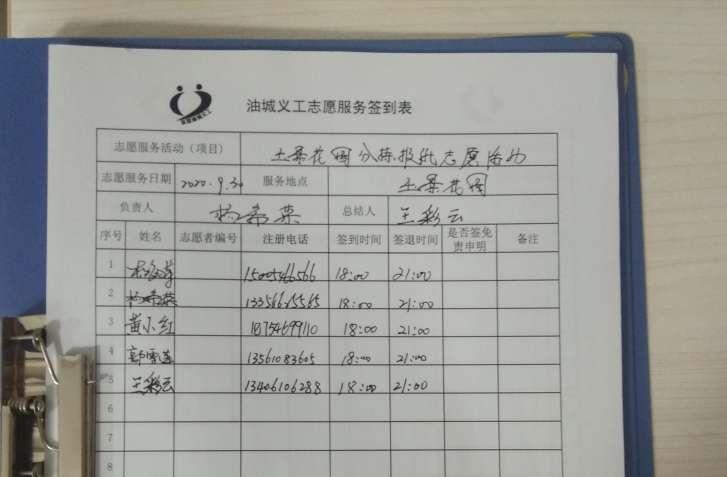 油城义工志愿服务签到表
志愿服务活动（项目） 土景花园分拣报纸志愿活动
志愿服务日期 2020.9.30 服务地点 土景花园
负责人 杨希荣 总结人 王彩云
序号 姓名 志愿者编号 注册电话 签到时间 签退时间 是否签免责申明 备注
1 18:00 21:00
2 18:00 21:00
3 黄小红 18754699110 18:00 21:00
4 13561083605 18:00 21:00
5 王彩云 13406106288 18:00 21:00
6
7
8